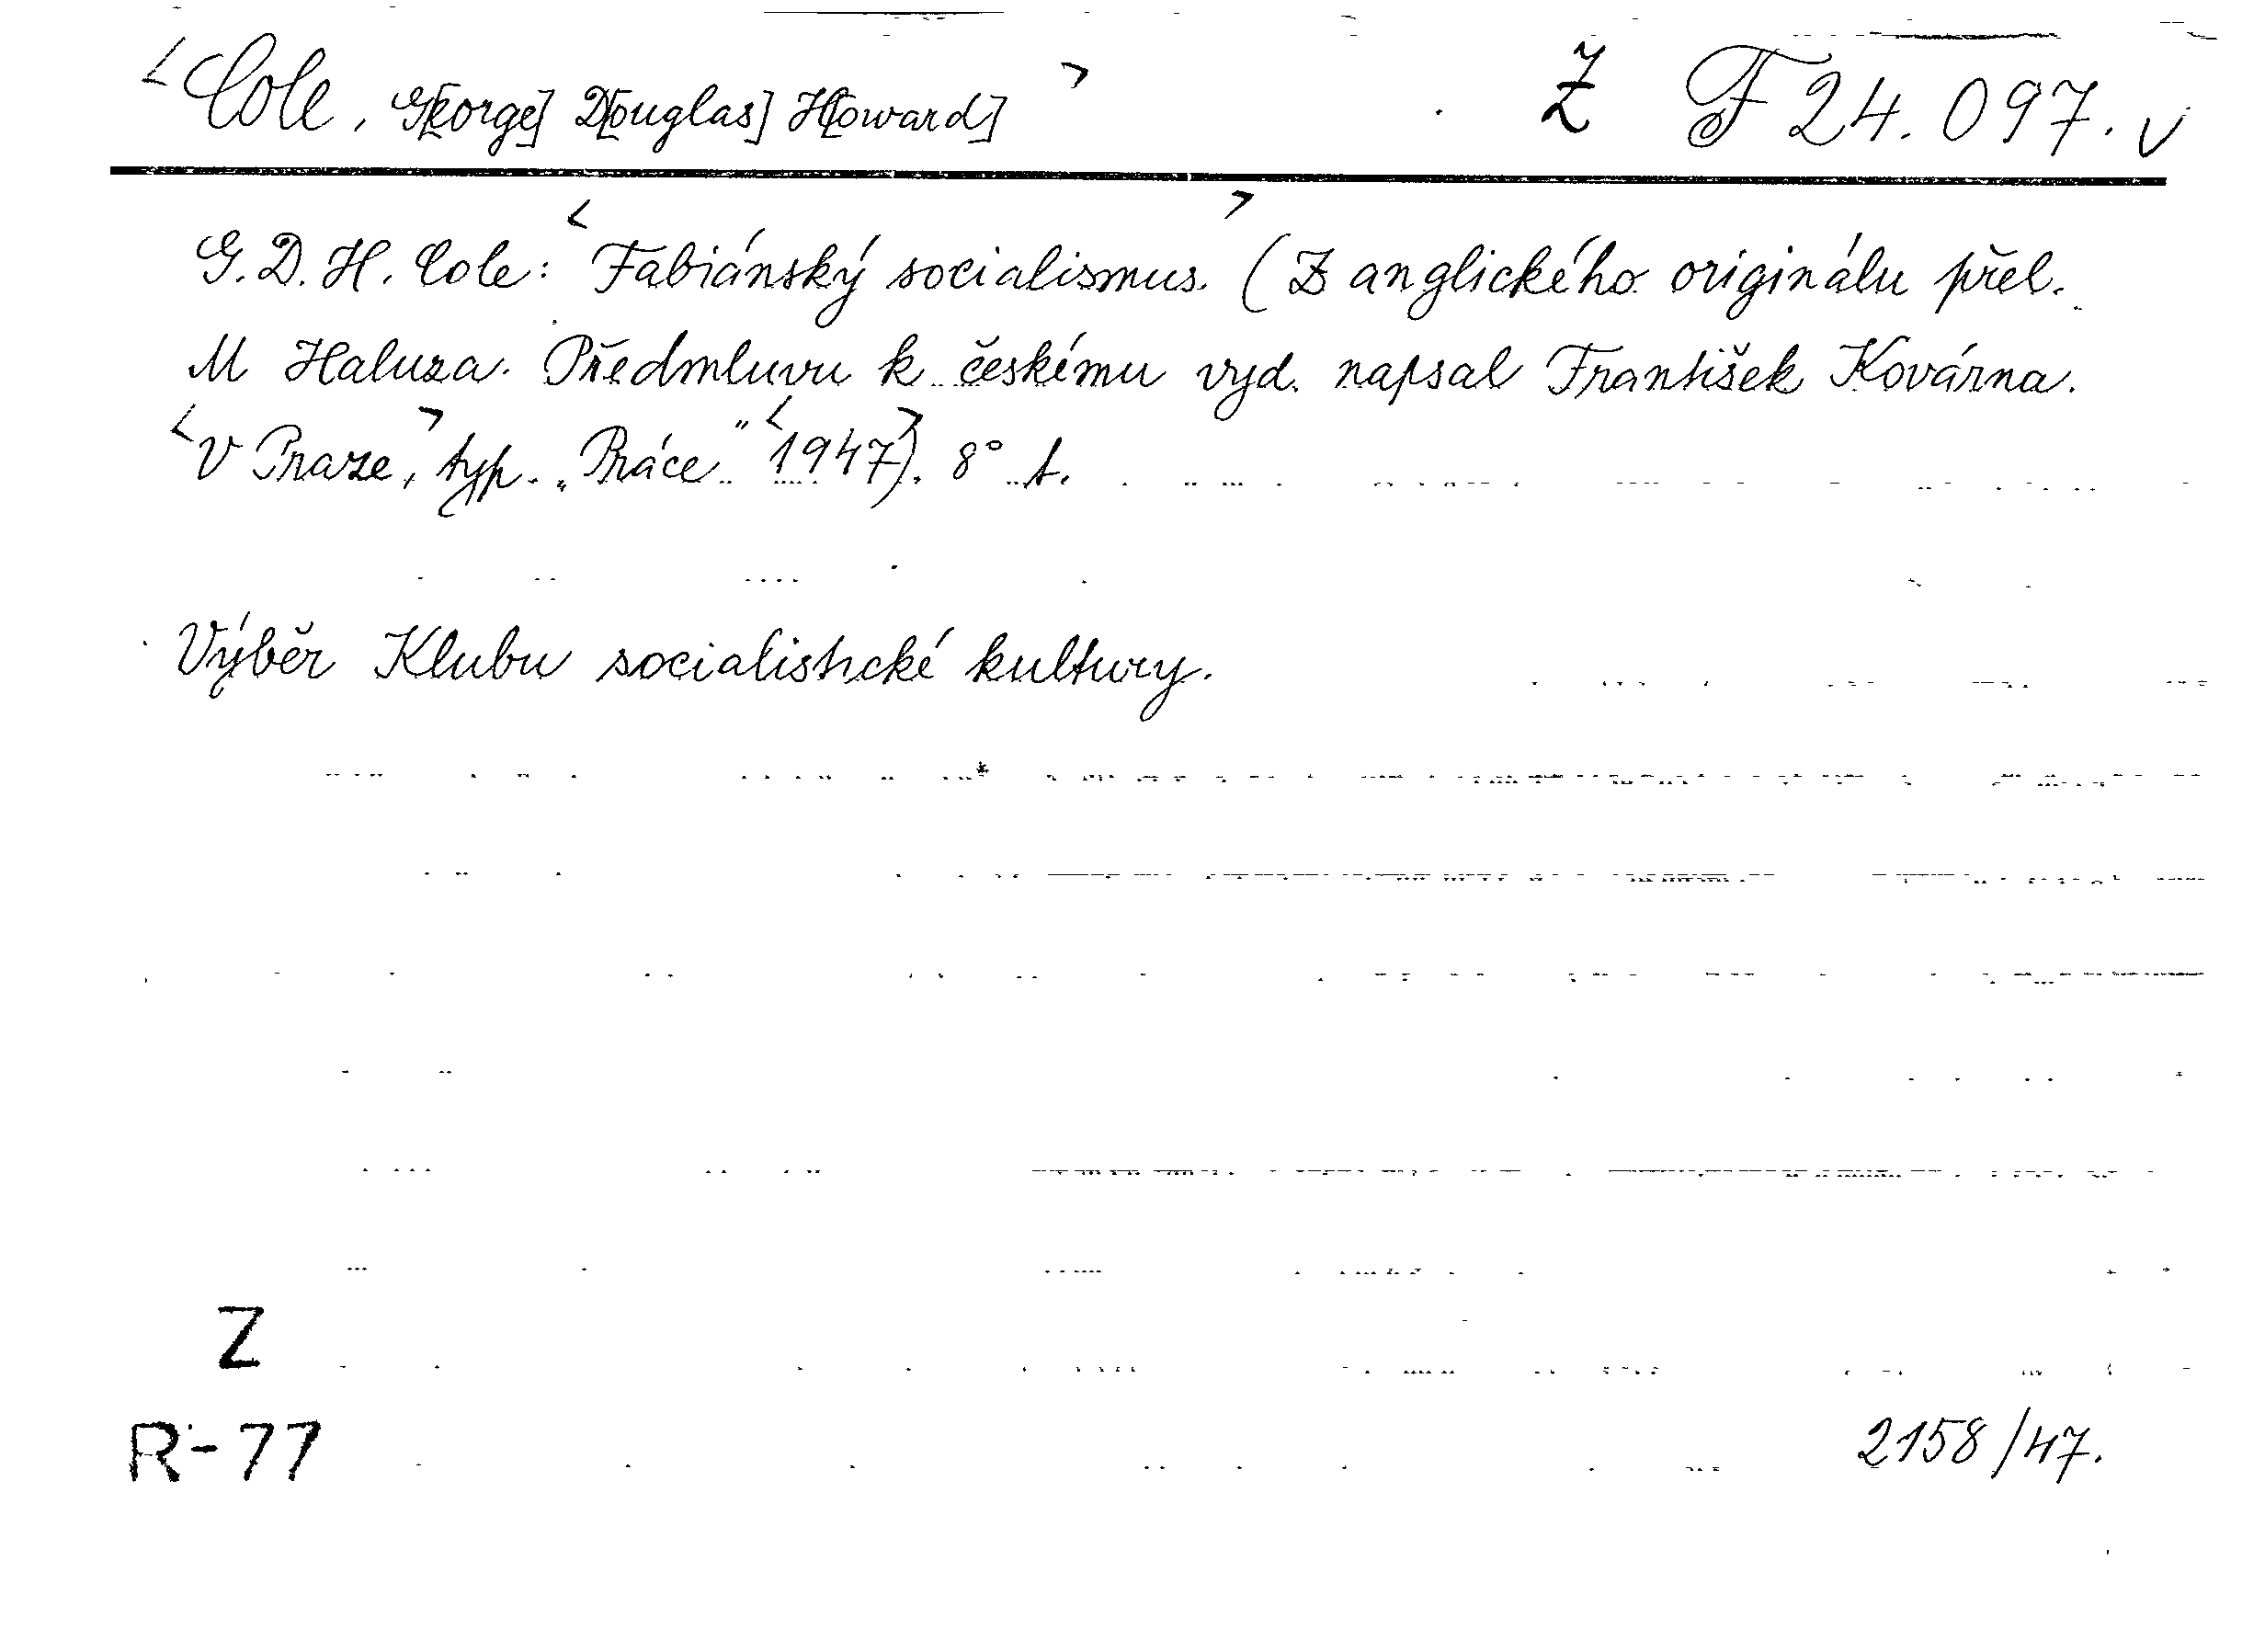 <Cole, G[eorge] D[ouglas] H[oward]> Z F 24.097. v
G. D. H. Cole: <Fabiánský socialismus.> (Z anglického originálu přel.
M Haluza. Předmluvu k českému vyd. napsal František Kovárna.
<V Praze,> typ. „Práce" <1947>). 8° t.
Výběr Klubu socialistické kultury.
Z
R-77 2158/47.